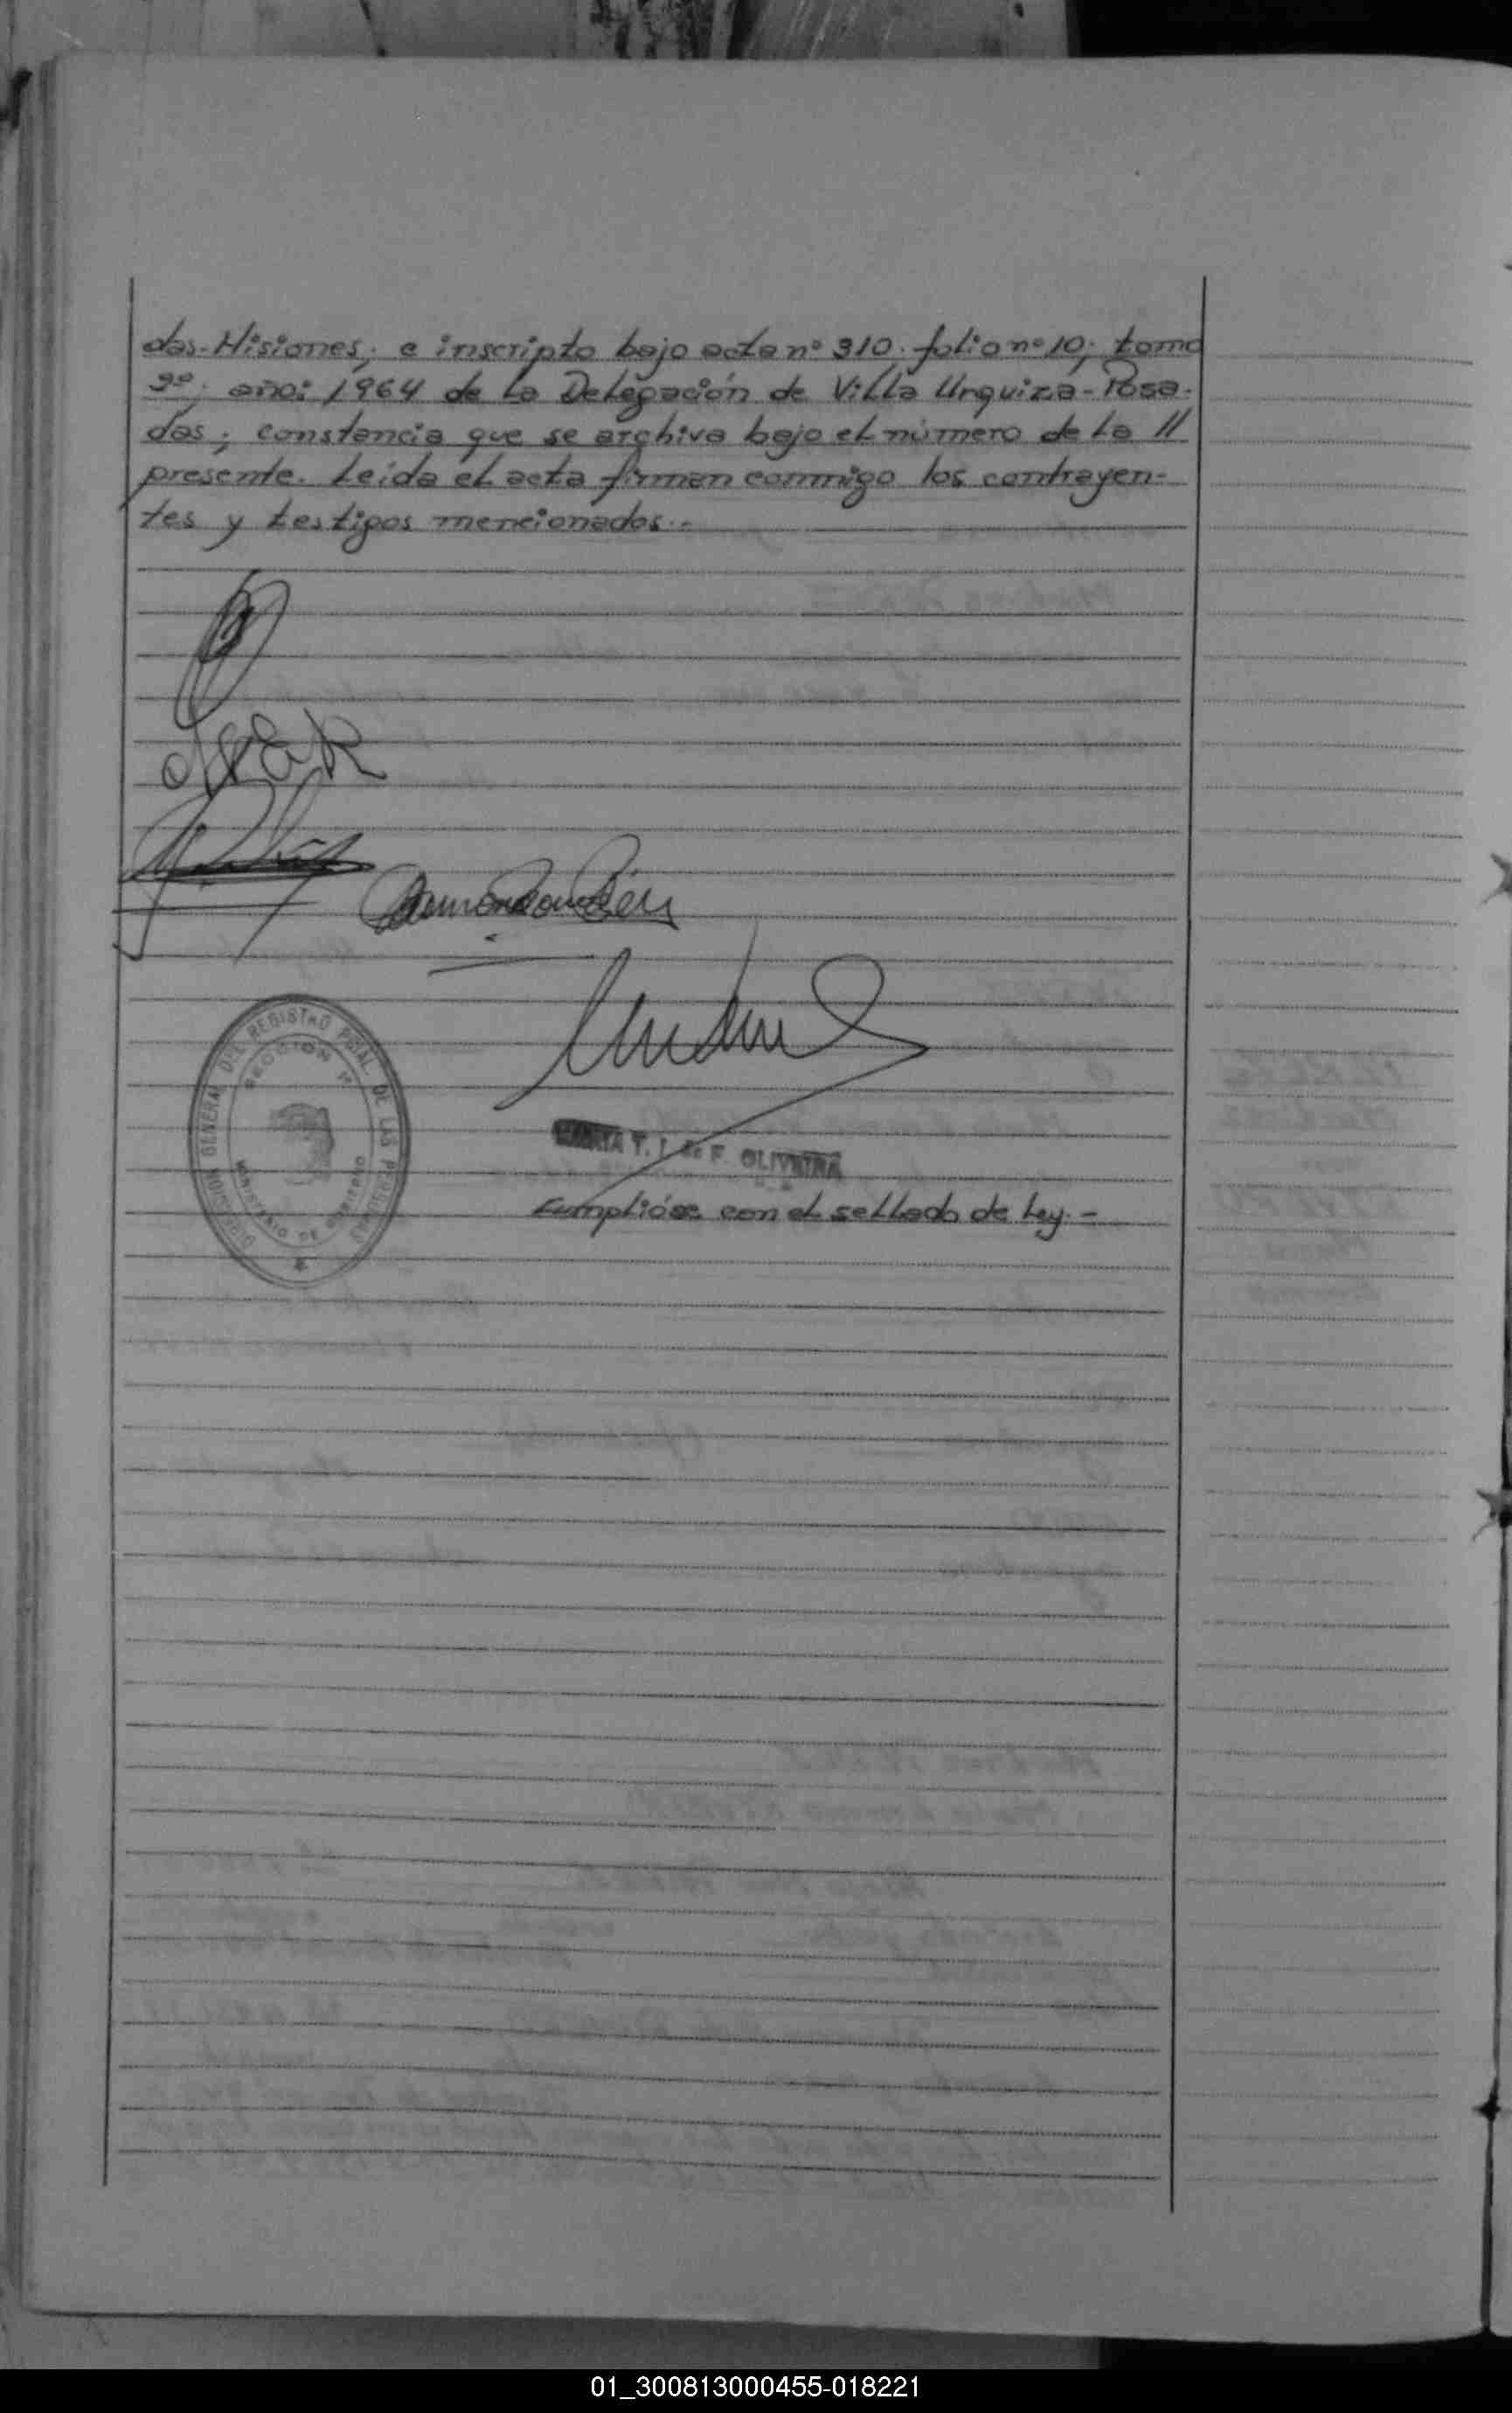 das-Misiones; e inscripto bajo acta nº 310. folio nº 10; tomo
3º; año: 1964 de la Delegación de Villa Urquiza-Posa-
das; constancia que se archiva bajo el número de la //
presente. Leída el acta firman conmigo los contrayen-
tes y testigos mencionados.-
DIRECCION GENERAL DEL REGISTRO PCIAL. DE LAS PERSONAS
SECCION
MINISTERIO DE GOBIERNO
T. I. de F. OLIVEIRA
Cumplióse con el sellado de Ley.-
01_300813000455-018221